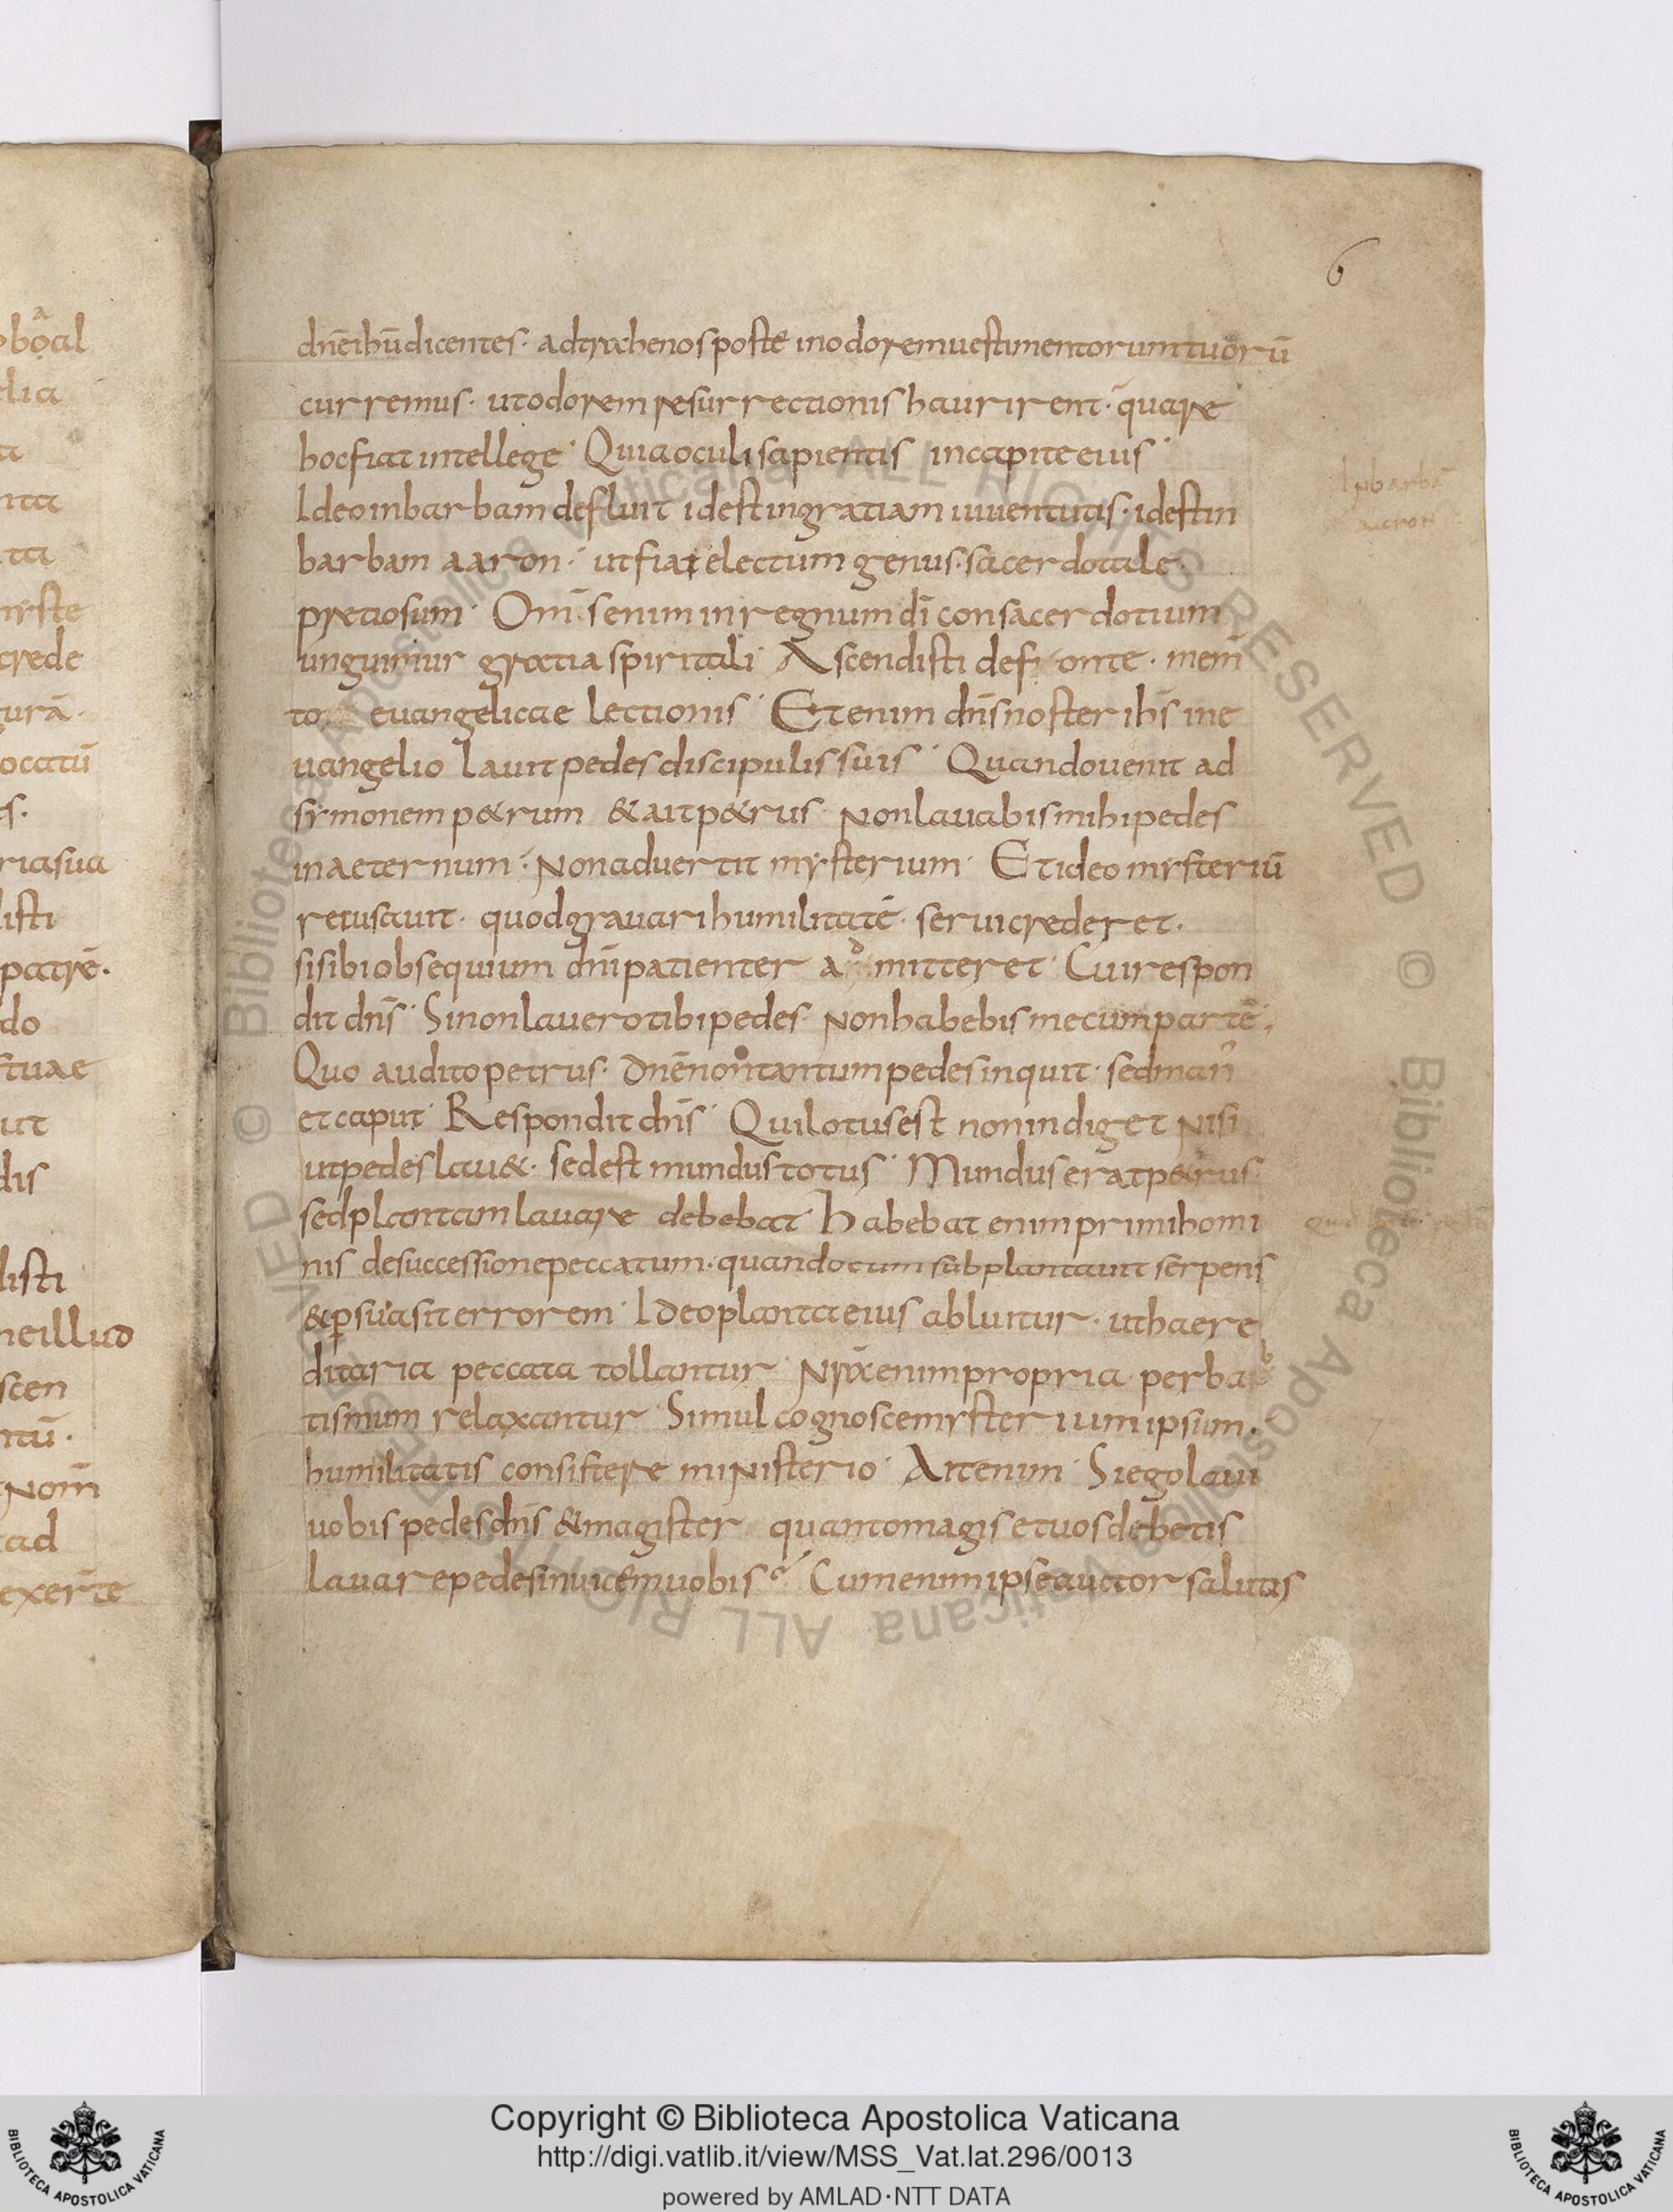 6
dnēihūdicentes· adtrahenospostē inodoremuestimentorumtuorū
curremus· utodoremresurrectionishaurirent· quare
hocfiatintellege· Quiaoculisapientis incapiteeius·
Ideoinbarbamdefluit idestingratiamiuuentutis· idestin
barbam aaron· utfiatelectumgenus·sacerdotale·
pretiosum· Om̄seniminregnumdīconsacerdotium
unguimur gratiaspiritali· Ascendistidefonte· mem̄
to euangelicae lectionis· Etenim dn̄snosterihs̄ ine
uangelio lauitpedesdiscipulissuis· Quandouenit ad
symonemp&rum &aitp&rus· Nonlauabismihipedes
inaeternum· Nonaduertit mysterium· Etideomysteriū
recusauit· quodgrauarihumilitatē· seruicrederet·
sisibiobsequium dn̄ipatienter admitteret· Cuirespon
dit dn̄s· Sinonlauerotibipedes· Nonhabebismecumpartē·
Quo auditopetrus· Dnēnontantumpedesinquit· sedman
etcaput· Respondit dn̄s· Quilotusest nonindiget Nisi
utpedeslau&· sedestmundustotus· Munduseratp&rus·
sedplantamlauare debebat· Habebatenimprimihomi
nis desuccessionepeccatum· quandoeumsubplantauit serpens
&p̱suasiterrorem· Ideoplantaeius abluitur· uthaere
ditaria peccata tollantur· Nr̄aenimpropria perbab
tismum relaxantur· Simulcognoscemysteriumipsum·
humilitatis consistere ministerio· Aitenim· Siegolaui
uobispedesdn̄s &magister quantomagisetuosdebetis
lauarepedesinuicemuobis· Cumenimipseauctorsalutis
Inbarbā
aaron
Copyright © Biblioteca Apostolica Vaticana
http://digi.vatlib.it/view/MSS_Vat.lat.296/0013
powered by AMLAD·NTT DATA
BIBLIOTECA APOSTOLICA VATICANA
BIBLIOTECA APOSTOLICA VATICANA
© Biblioteca Apostolica Vaticana ALL RIGHTS RESERVED © Biblioteca Apostolica Vaticana ALL RIGHTS RESERVED